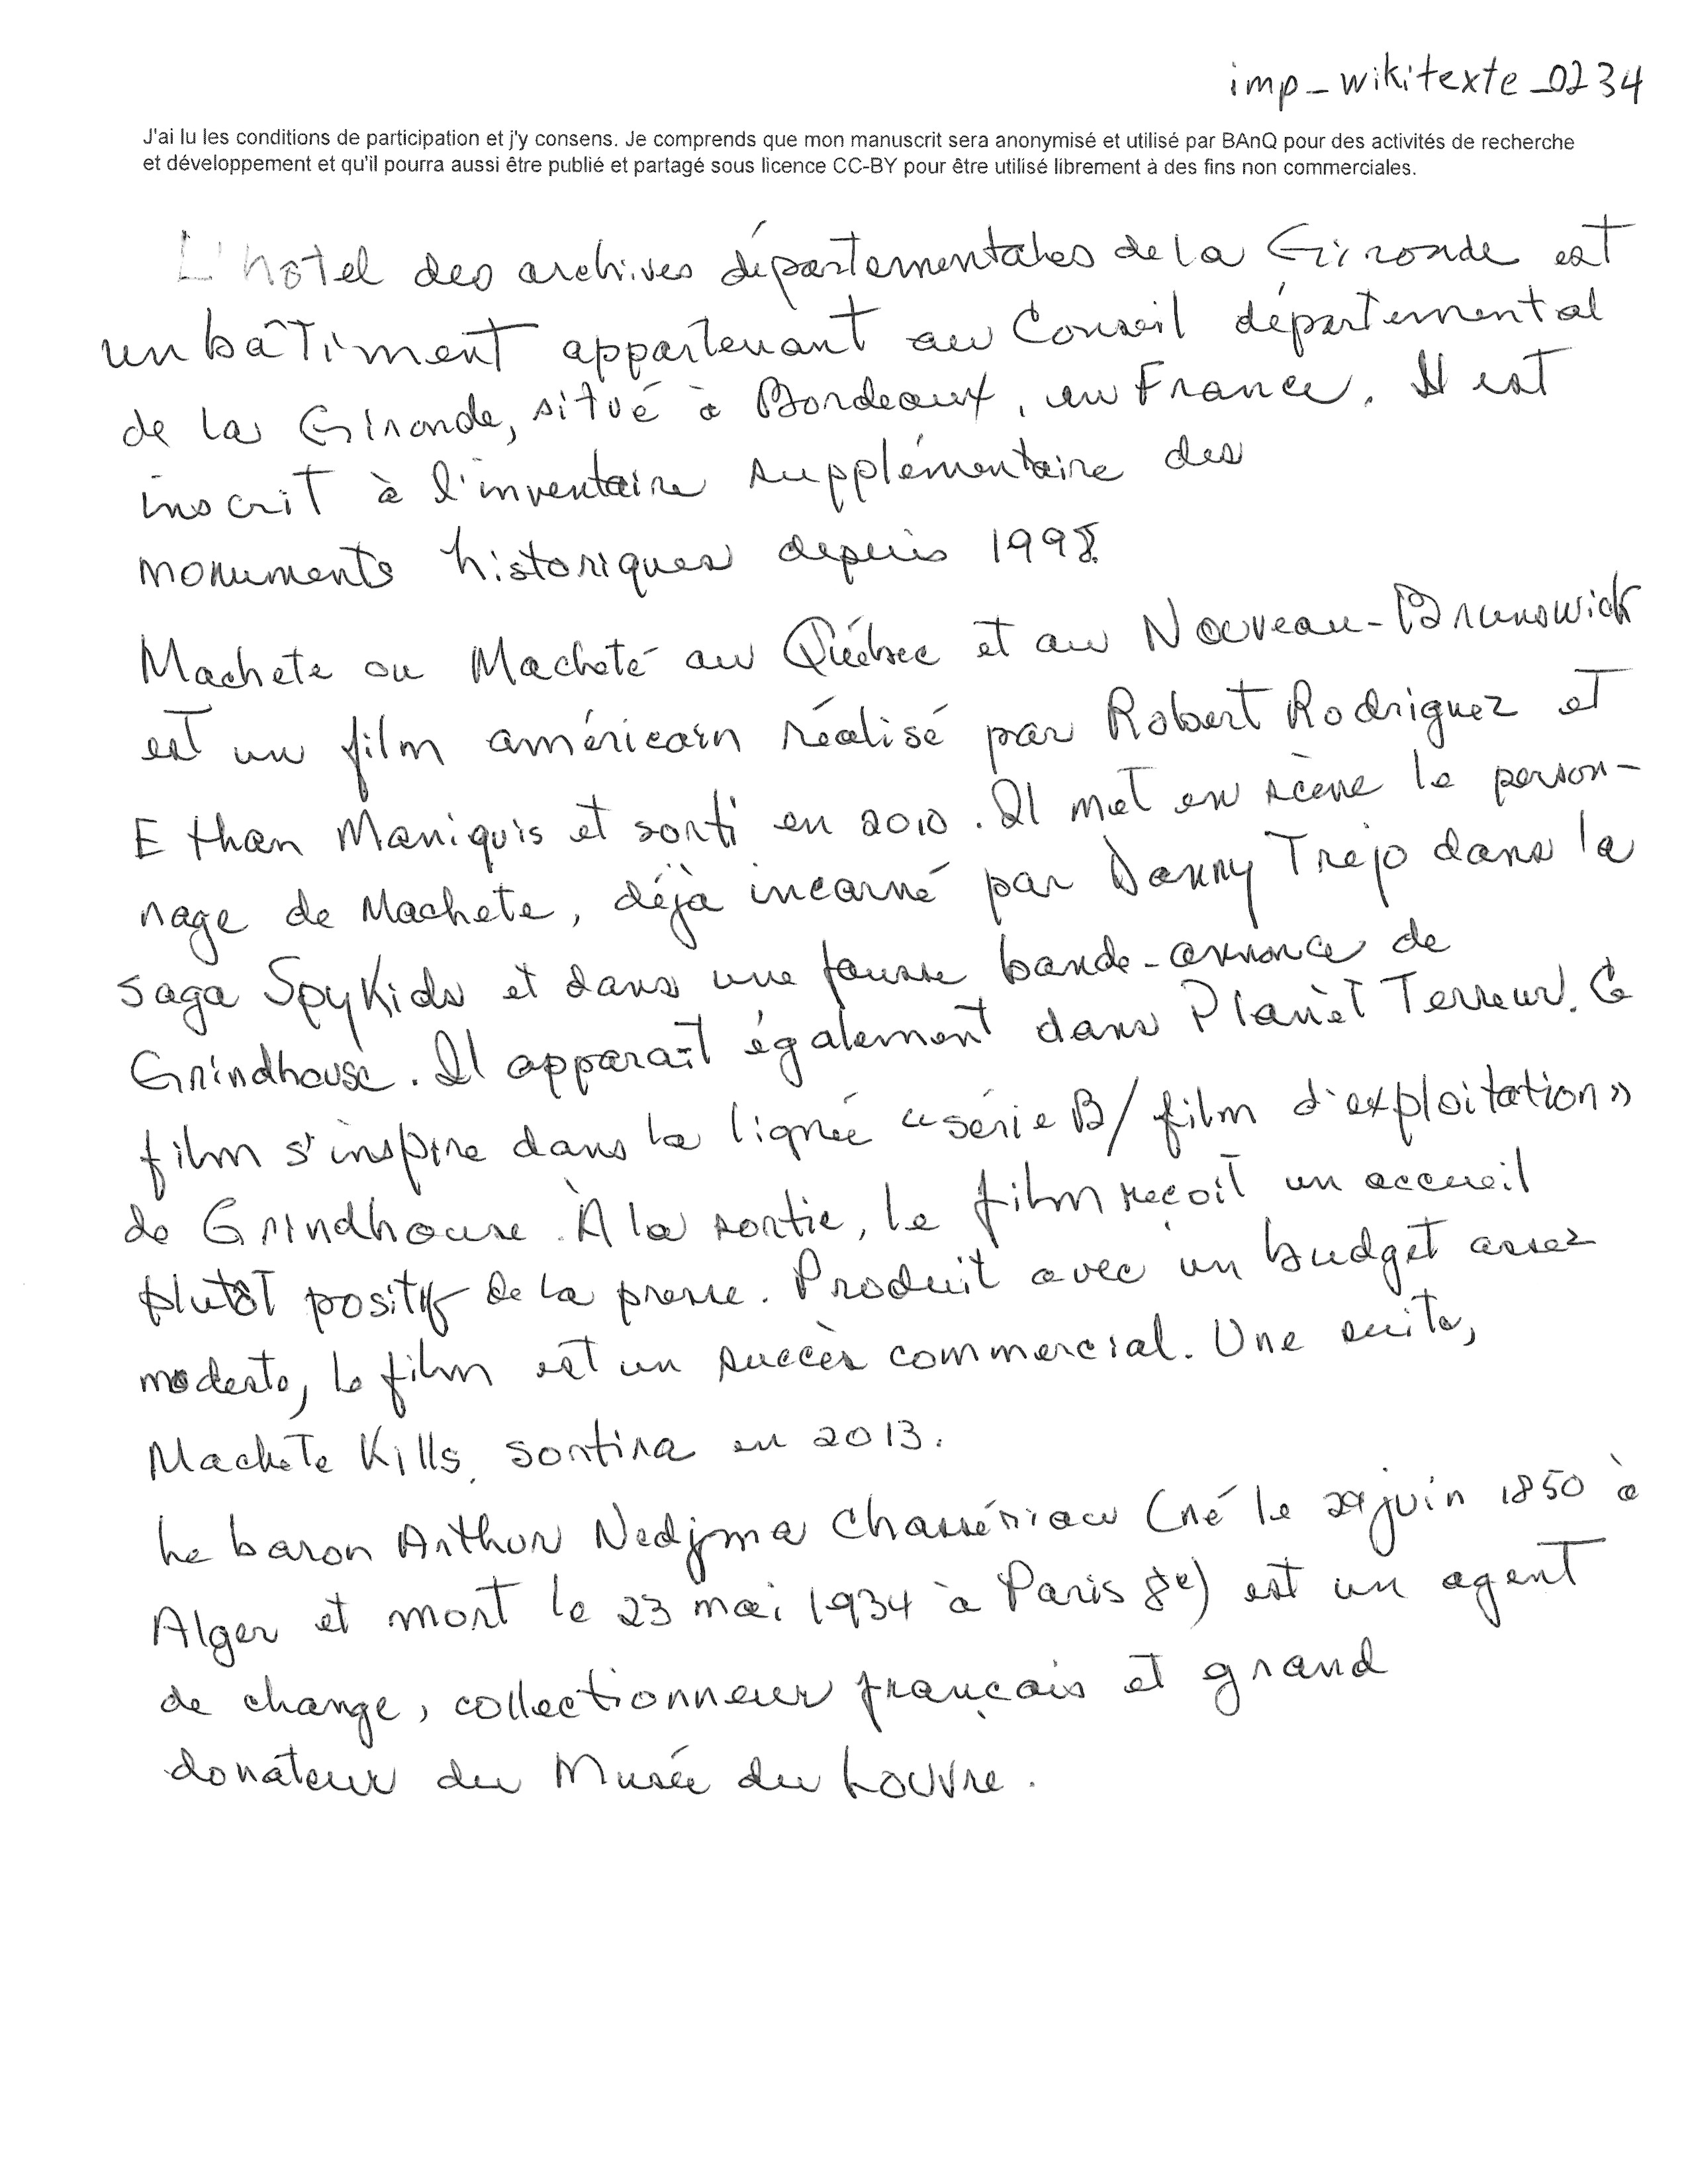 imp_wikitexte_0234
J'ai lu les conditions de participation et j'y consens. Je comprends que mon manuscrit sera anonymisé et utilisé par BAnQ pour des activités de recherche
et développement et qu'il pourra aussi être publié et partagé sous licence CC-BY pour être utilisé librement à des fins non commerciales.
L'hôtel des archives départementales de la Gironde est
un bâtiment appartenant au Conseil départemental
de la Gironde, situé à Bordeaux, en France. Il est
inscrit à l'inventaire supplémentaire des
monuments historiques depuis 1998.
Machete ou Machete au Québec et au Nouveau-Brunswick
est un film américain réalisé par Robert Rodriguez et
Ethan Maniquis et sorti en 2010. Il met en scène le person-
nage de Machete, déjà incarné par Danny Trejo dans la
saga Spy Kids et dans une fausse bande-annonce de
Grindhouse. Il apparaît également dans Planèt Terreur. Ce
film s'inspire dans la lignée «série B/film d'exploitation»
de Grindhouse. À la sortie, le film reçoit un accueil
plutôt positif de la presse. Produit avec un budget assez
modeste, le film est un succès commercial. Une suite,
Machete Kills, sortira en 2013.
Le baron Arthur Nedjma Chassériau (né le 29 juin 1850 à
Alger et mort le 23 mai 1934 à Paris 8e) est un agent
de change, collectionneur français et grand
donateur du Musée du Louvre.